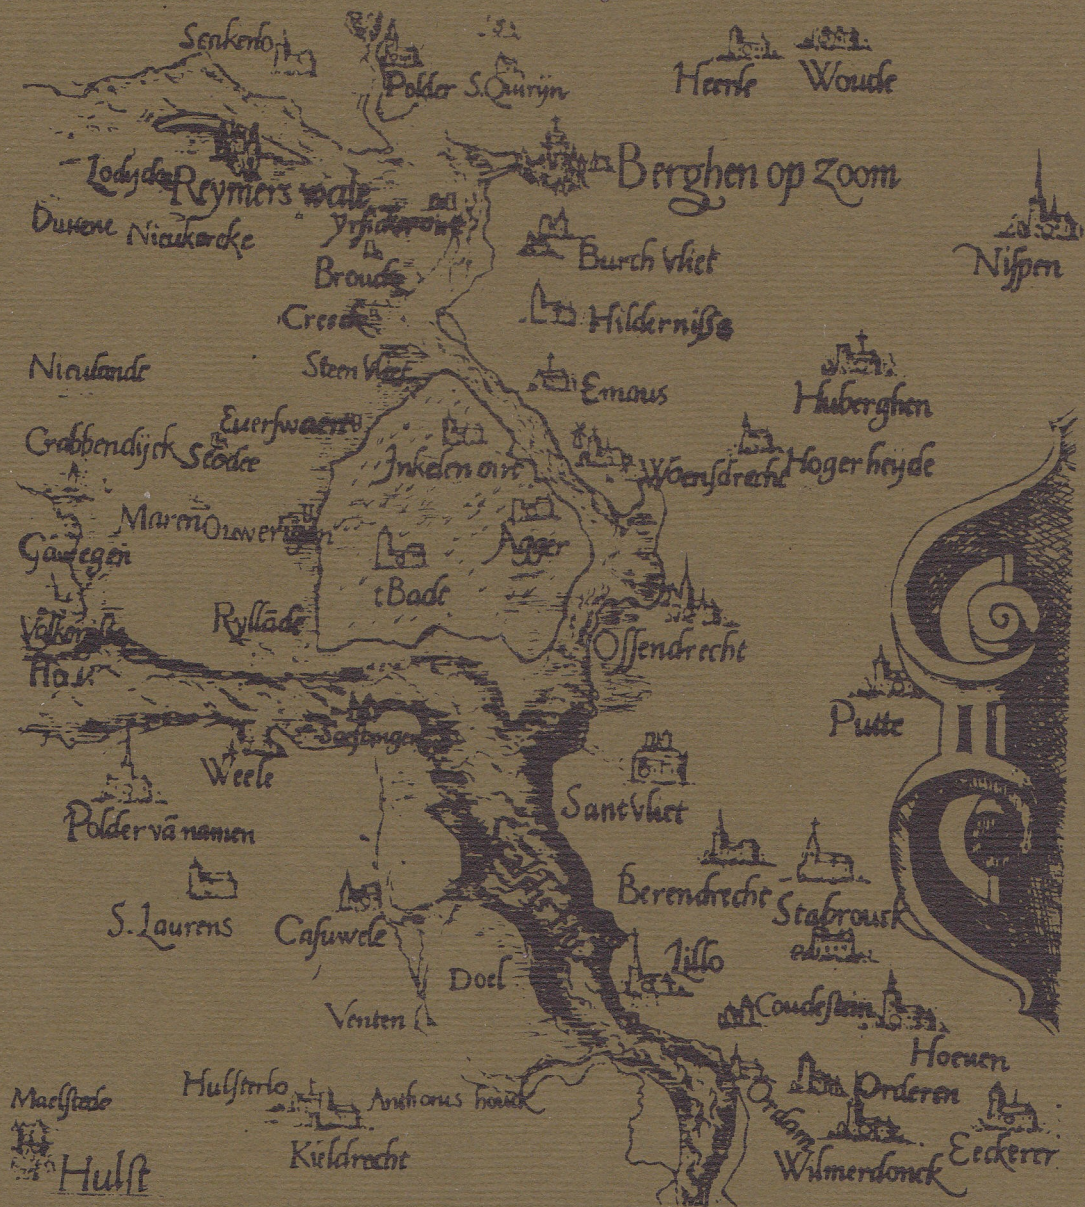 Senkerlo
Polder
S. Quirijn
Heerle
Woude
Lodyde
Reymerswale
Berghen op Zoom
Duvene
Nieukercke
Yrsickeroirt
Burch Vliet
Nispen
Broude
Creecke
Hildernisse
Nieulande
Steen Vliet
Emaus
Huberghen
Everswaert
Crabbendijck
Stodee
Inkelenoirt
Woensdrecht
Hogerheyde
Maren
Ouwerdgen
Gawegen
Agger
tBade
Ryllāde
Ossendrecht
Putte
Saeftingen
Weele
Santvliet
Polder vā namen
Berendrecht
Stabrouck
S. Laurens
Casuwele
Lillo
Doel
Coudestein
Venten
Hoeven
Maelstede
Hulsterlo
Anthonis houck
Ordam
Orderen
Kieldrecht
Wilmerdonck
Eeckerer
Hulst